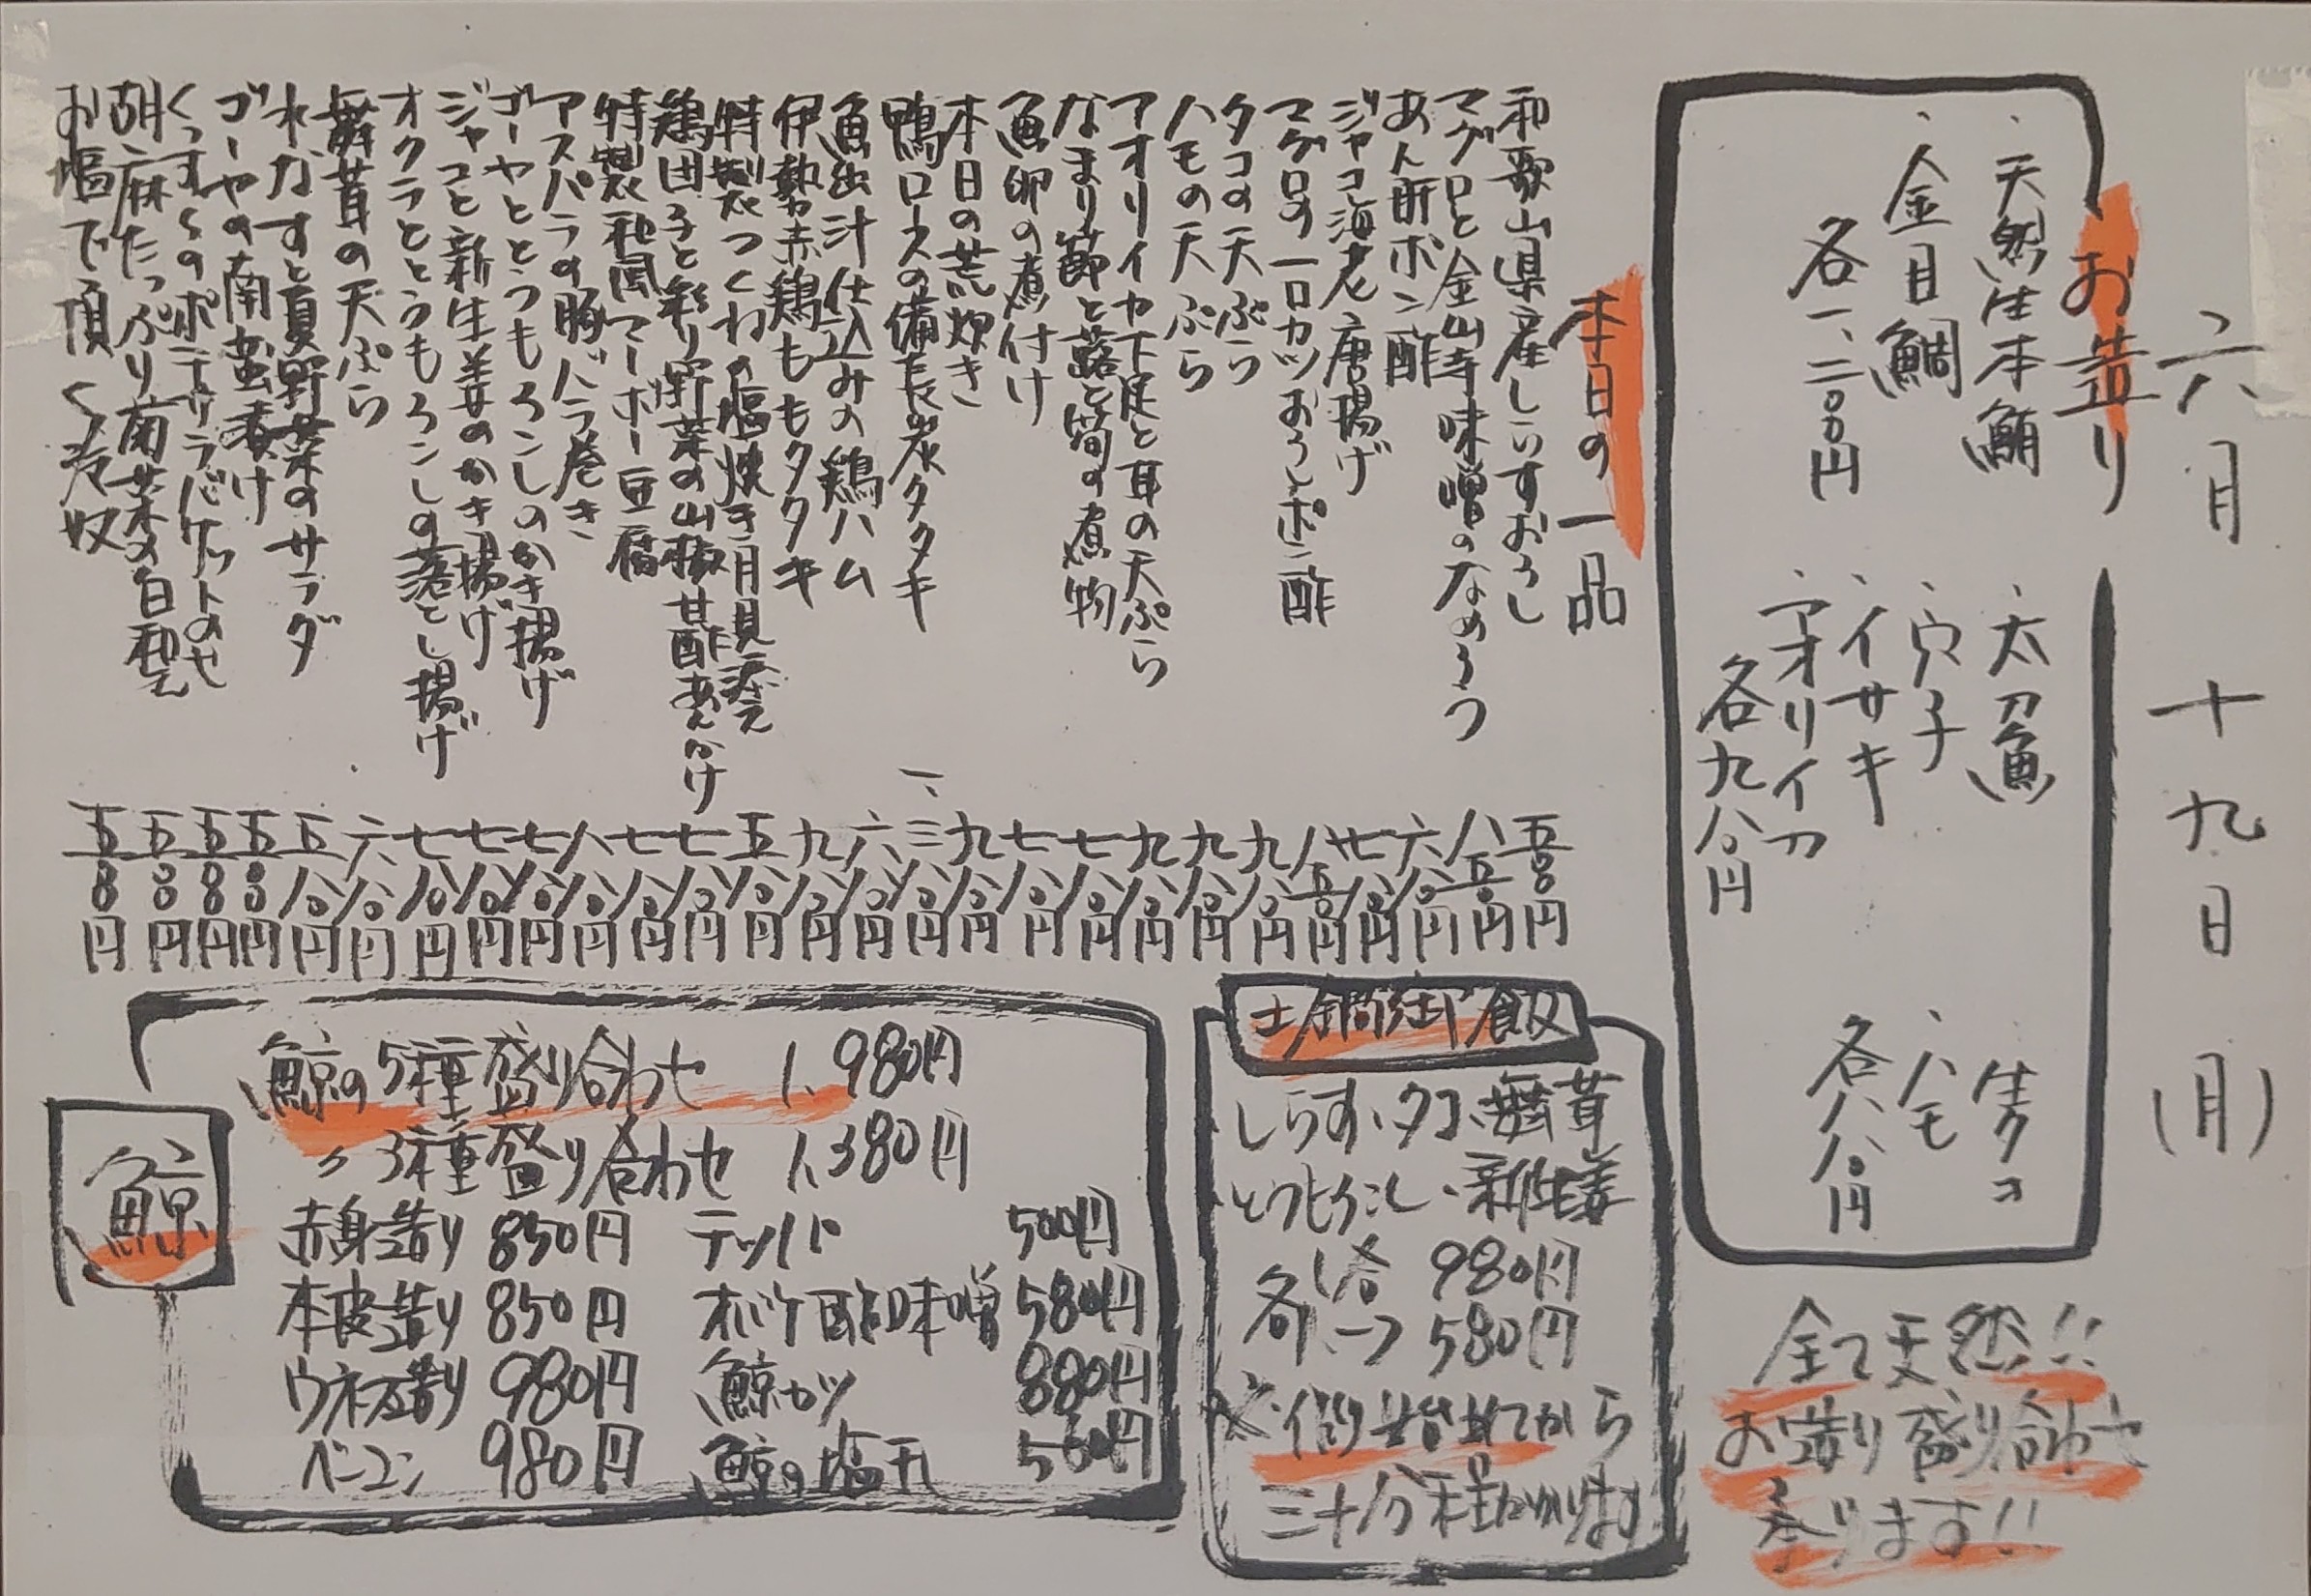 六月十九日(月)
お造り
・天然生本鮪
・金目鯛
各一、二〇〇円
・太刀魚
・穴子
・イサキ
・アオリイカ
各九八〇円
・生タコ
・ハモ
各八八〇円
全て天然!!
お造り盛り合わせ
承ります!!
本日の一品
和歌山県産しらすおろし 五五〇円
マグロと金山寺味噌のなめろう 八五〇円
あん肝ポン酢 六八〇円
ジャコ海老唐揚げ 七八〇円
マグロの一口カツおろしポン酢 八五〇円
タコの天ぷら 九八〇円
ハモの天ぷら 九八〇円
アオリイカ下足と耳の天ぷら 九八〇円
なまり節と蕗と筍の煮物 七八〇円
魚卵の煮付け 七八〇円
本日の荒炊き 九八〇円
鴨ロースの備長炭タタキ 一、三八〇円
魚出汁仕込みの鶏ハム 六八〇円
伊勢赤鶏ももタタキ 九八〇円
特製つくねの塩焼き月見添え 五八〇円
鶏団子と彩り野菜の山椒甘酢あんかけ 七八〇円
特製和風マーボー豆腐 七八〇円
アスパラの豚バラ巻き 八八〇円
ゴーヤととうもろこしのかき揚げ 七八〇円
ジャコと新生姜のかき揚げ 七八〇円
オクラととうもろこしの落とし揚げ 七八〇円
舞茸の天ぷら 六八〇円
水なすと夏野菜のサラダ 五八〇円
ゴーヤの南蛮漬け 五五〇円
くっすくのポテサラバケットのせ 五五〇円
胡麻たっぷり菊菜の白和え 五五〇円
お塩で頂く冷奴 五五〇円
土鍋御飯
しらす、タコ、舞茸
とうもろこし、新生姜
各一合 980円
各ハーフ 580円
※御始めてから
三十分程かかります
鯨
鯨の5種盛り合わせ 1,980円
〃3種盛り合わせ 1,380円
赤身造り 850円 テッパ 500円
本皮造り 850円 オバケ酢味噌 580円
ウネス造り 980円 鯨カツ 880円
ベーコン 980円 鯨の塩干 560円